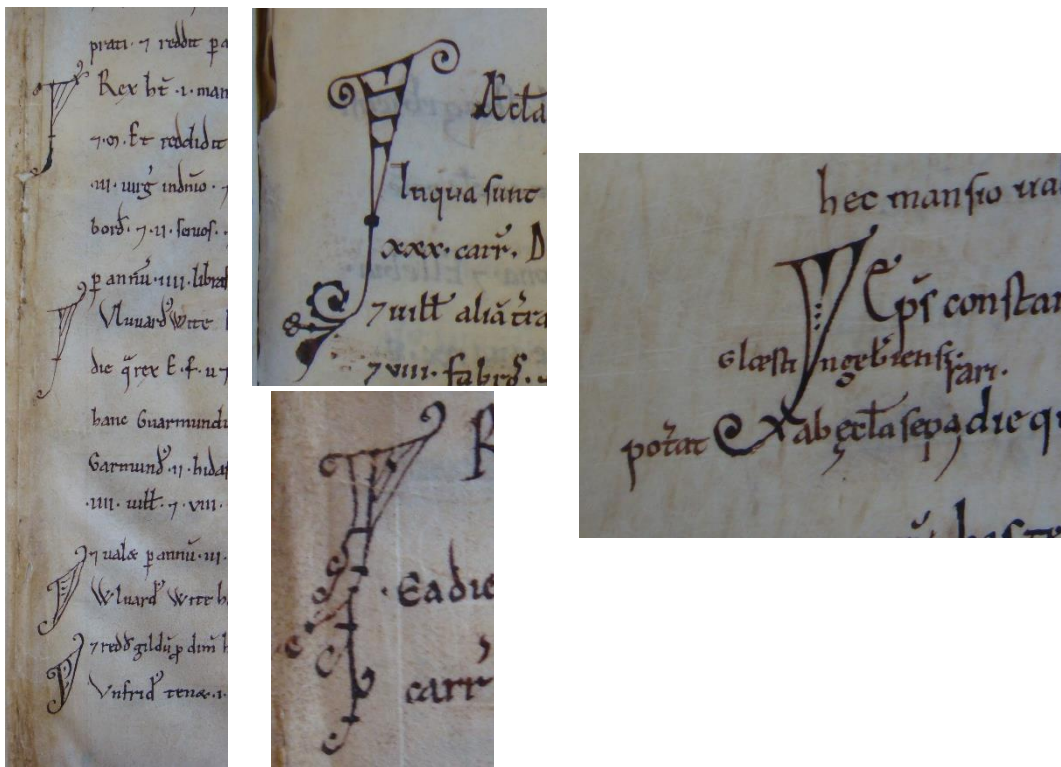 prati · ⁊ reddit p a
Rex ht̄ · i · man
⁊ · · Et reddidit
· iii · uirg̃ indnio · ⁊
bord̃ · ⁊ · ii · seruos ·
p annũ · iiii · libras
Vluuard̃ Wite
die q̃ rex E · f · u ⁊
hanc Guarmundu
Garmund̃ · ii · hidas
· iiii · uill̃ · ⁊ · viii ·
⁊ ualæ p annũ · iii ·
Wluard̃ Wite h
⁊ redd̃ gildũ p dim̃ h
Vnfrid̃ tenæ · i ·
Æccła
In qua sunt
xxx · carr̃ · D
⁊ uill̃ aliã t̃ra
⁊ viii · fabrō̃s ·
R
· Ea die
carr̃
hec mansio ua
Ep̃s constan
Glæsti ngeb̃iensi
rari ·
pot̃at ab æccła sep̃ die q